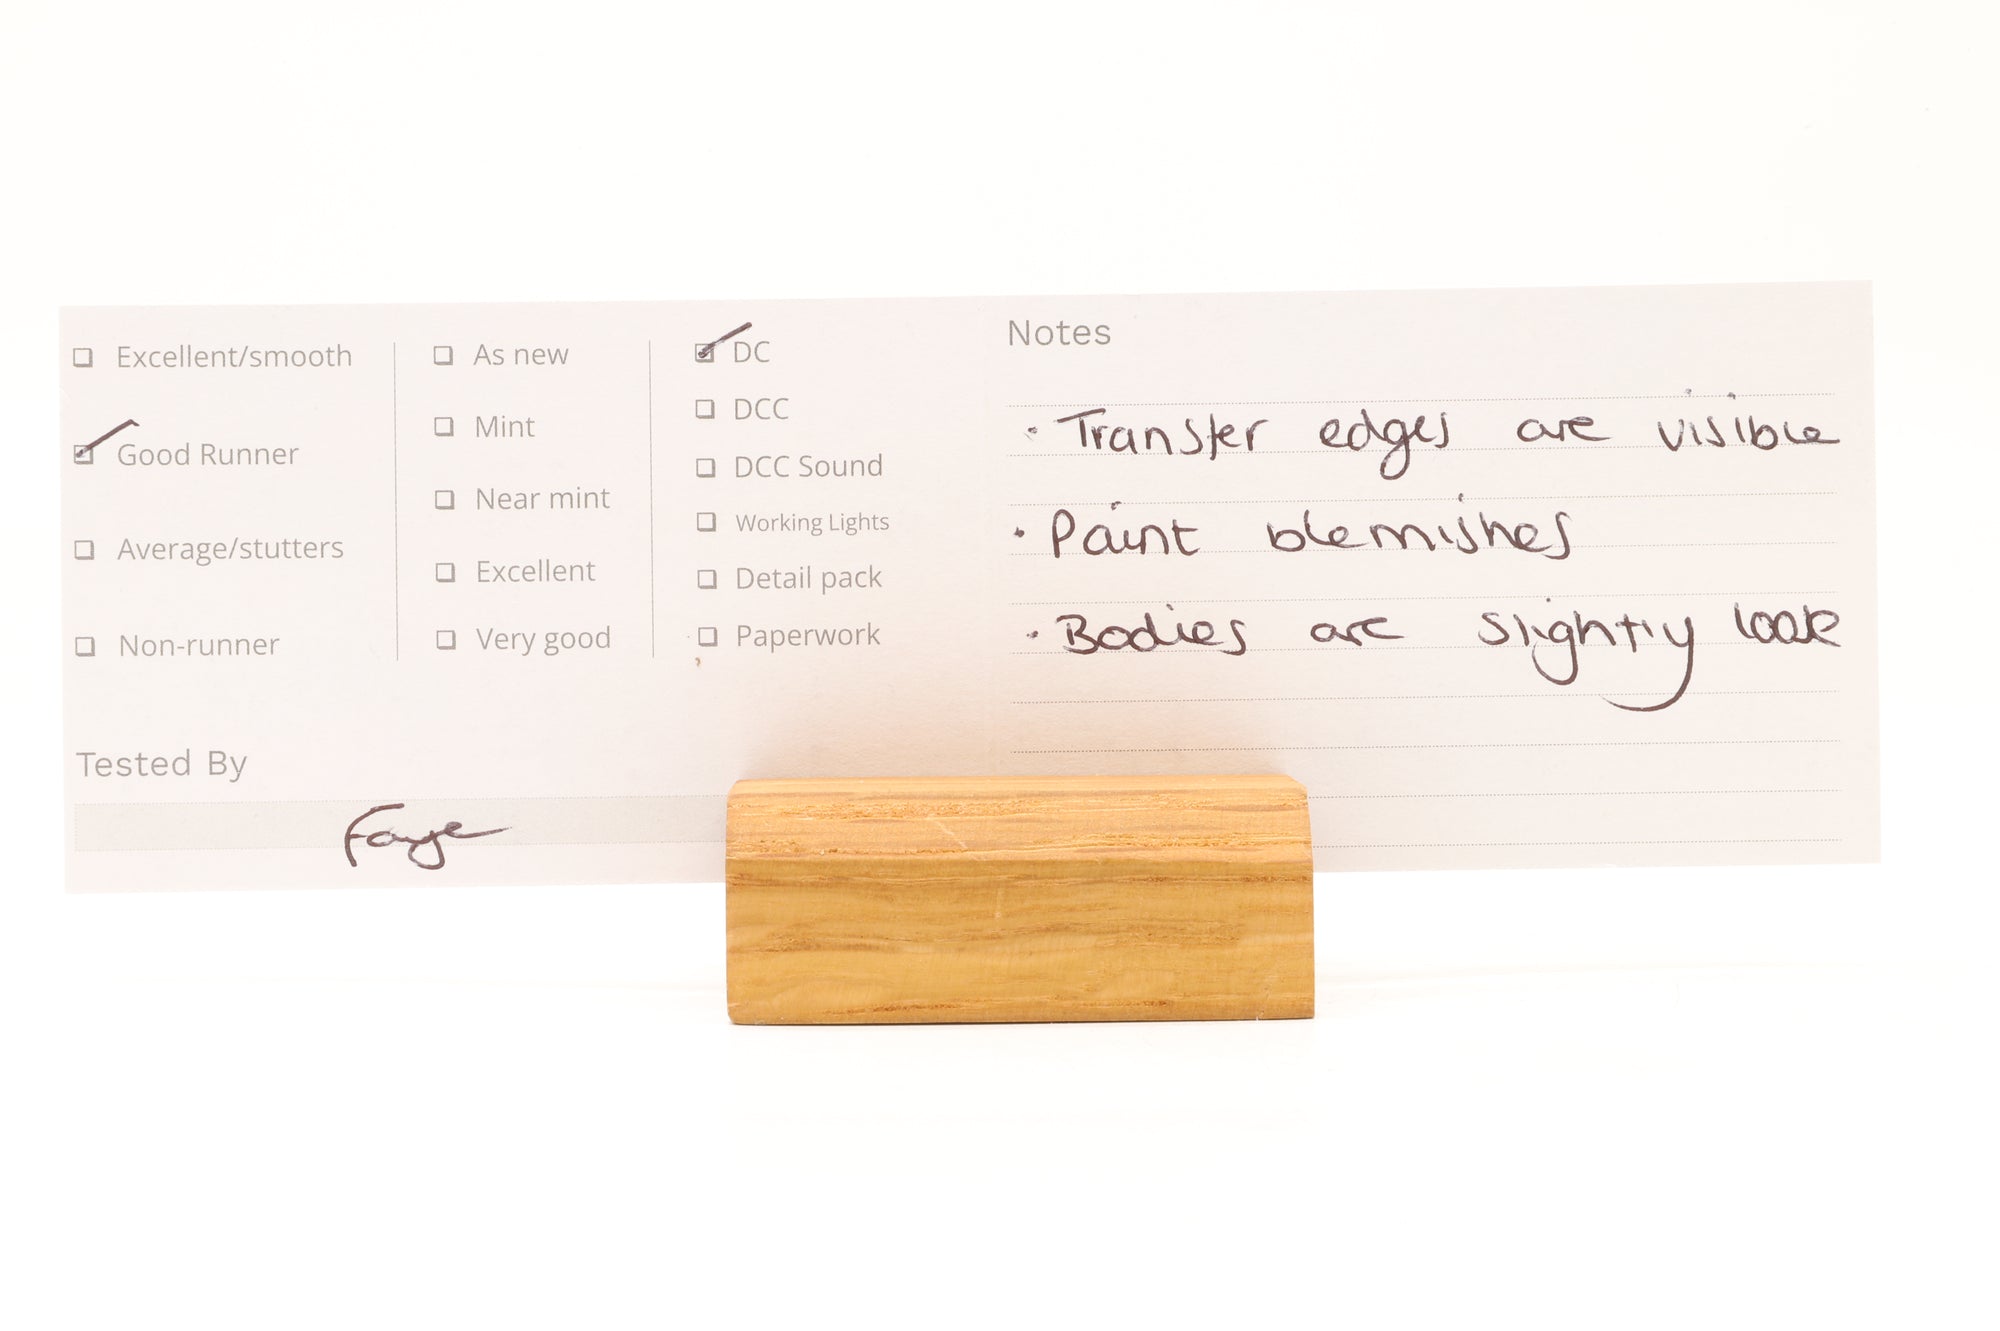 Excellent/smooth
Good Runner
Average/stutters
Non-runner
As new
Mint
Near mint
Excellent
Very good
DC
DCC
DCC Sound
Working Lights
Detail pack
Paperwork
Tested By
Faye
Notes
· Transfer edges are visible
· Paint blemishes
· Bodies are slightly loose